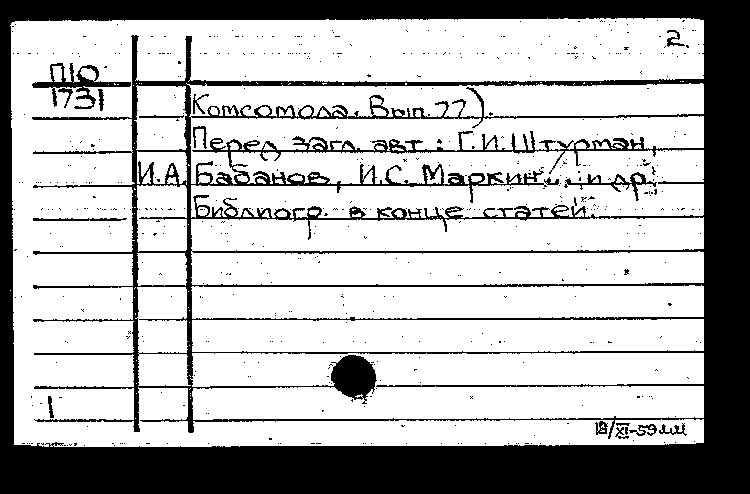 2
П10
1731
Комсомола. Вып. 77).
Перед загл. авт.: Г.И. Штурман,
И.А. Бабанов, И.С. Маркин... и др.
Библиогр. в конце статей.
1
18/XI-59 мм